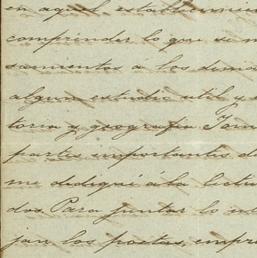 en aquel establecimie
comprender lo que
samientos á los demas
algun estudio util
toria y geografia Tam
partes importantes de
me dediqué á la lectu
dos Para juntar lo
jan los poetas, empre